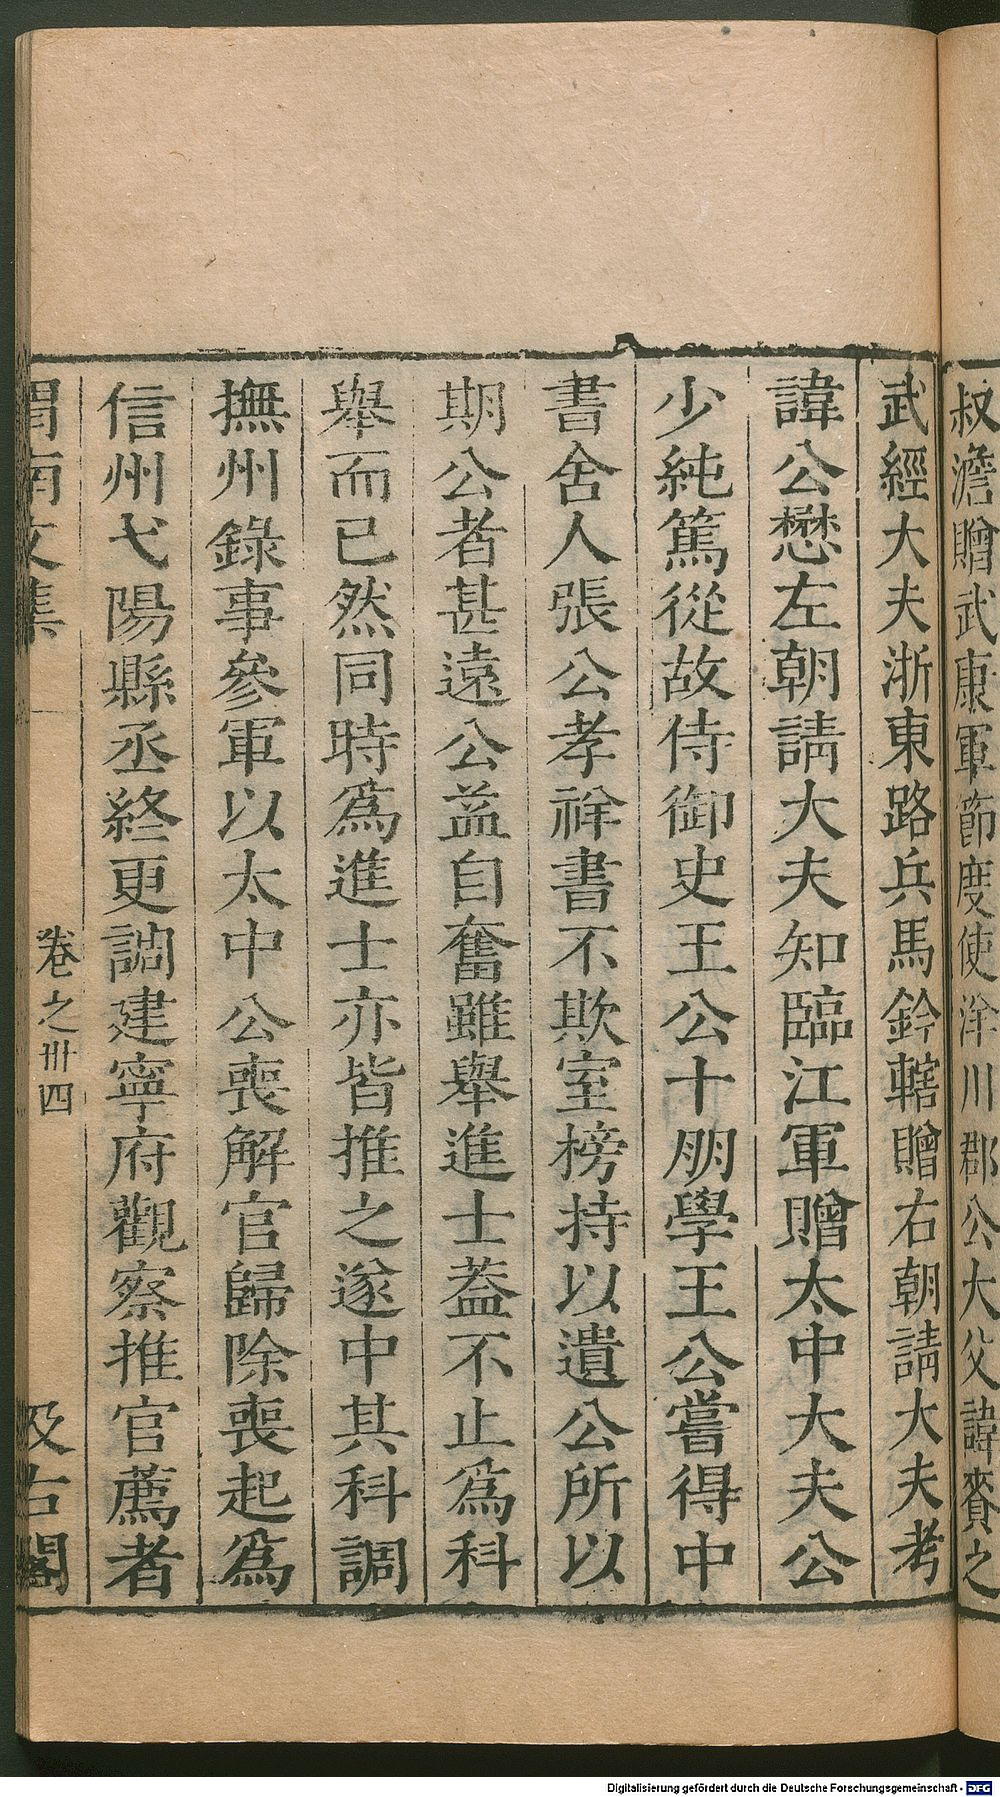 叔澹贈武康軍節度使洋川郡公大父諱賚之
武經大夫浙東路兵馬鈐轄贈右朝請大夫考
諱公懋左朝請大夫知臨江軍贈太中大夫公
少純篤從故侍御史王公十朋學王公嘗得中
書舍人張公孝祥書不欺室榜持以遺公所以
期公者甚遠公益自奮雖舉進士蓋不止爲科
舉而已然同時爲進士亦皆推之遂中其科調
撫州錄事參軍以太中公喪解官歸除喪起爲
信州弋陽縣丞終更調建寧府觀察推官薦者
渭南文集
卷之卅四
汲古閣
Digitalisierung gefördert durch die Deutsche Forschungsgemeinschaft - DFG